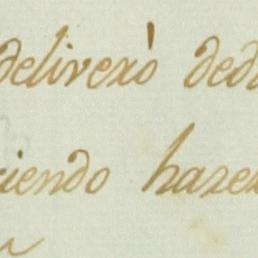 deliverò ded
iendo hazer